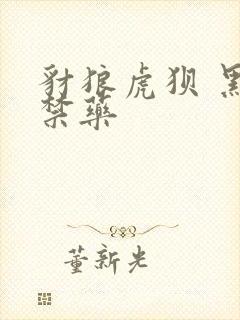 豺狼虎狈 黑
禁药
董新光